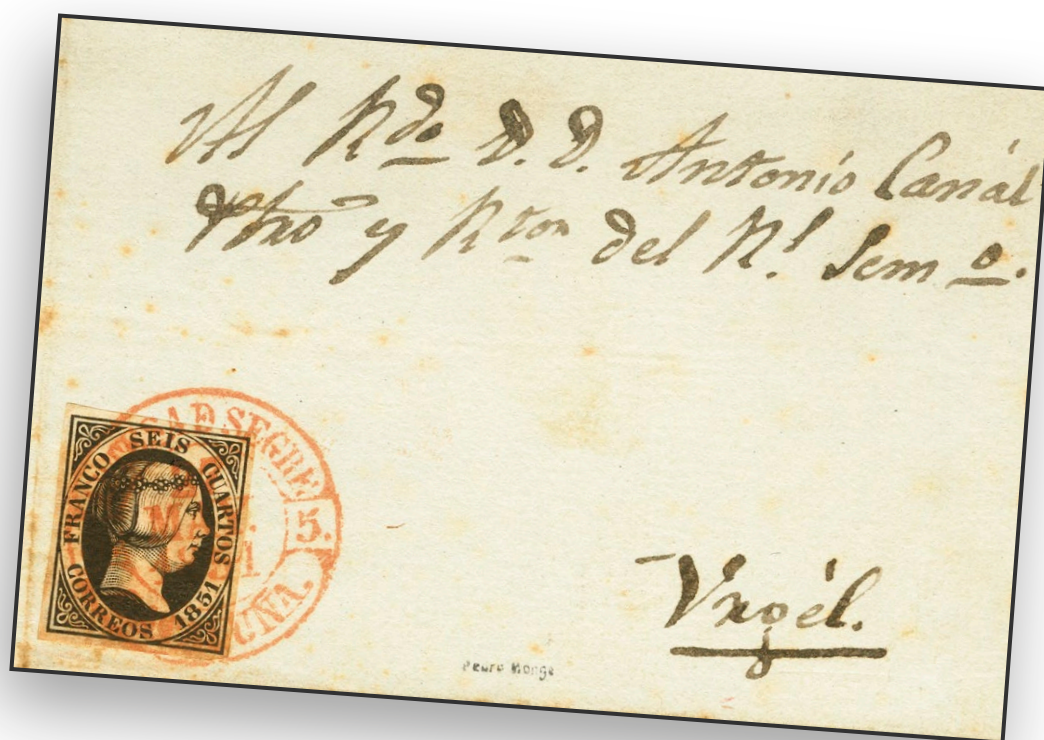 Al Rdo D. D. Antonio Canál
Pbro y Rtor del Rl. Semo.
FRANCO SEIS CUARTOS
CORREOS 1851
SEGRE
5.
Urgél.
Pedro Monge